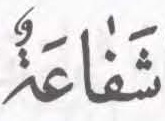 شَفَٰاعَةٌ